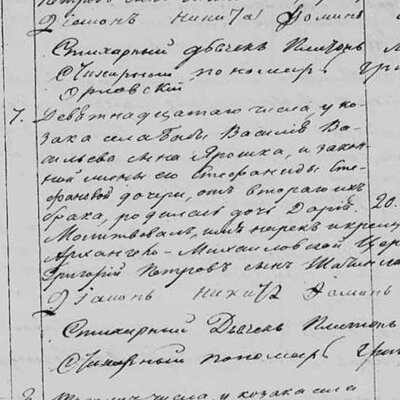 Діаконъ Никита Фоминъ
Стихарный дьячекъ Платонъ
Стихарный пономарь Гри
Орловскій
7. Девятнадцатаго числа, у ко-
зака села Бабы Василія Ва-
сильева сына Ярошка, и закон-
ной жены его Стефаниды Сте-
фановой дочери, отъ втораго ихъ
брака, родилась дочь Дарія. 20.
Молитвовалъ, имя нарекъ и крести
Архангело-Михаиловской Цер
Григорій Петровъ сынъ
Діаконъ Никита Фоминъ
Стихарный Дьячекъ Платонъ
Стихарный пономарь Григ
числа, у козака села